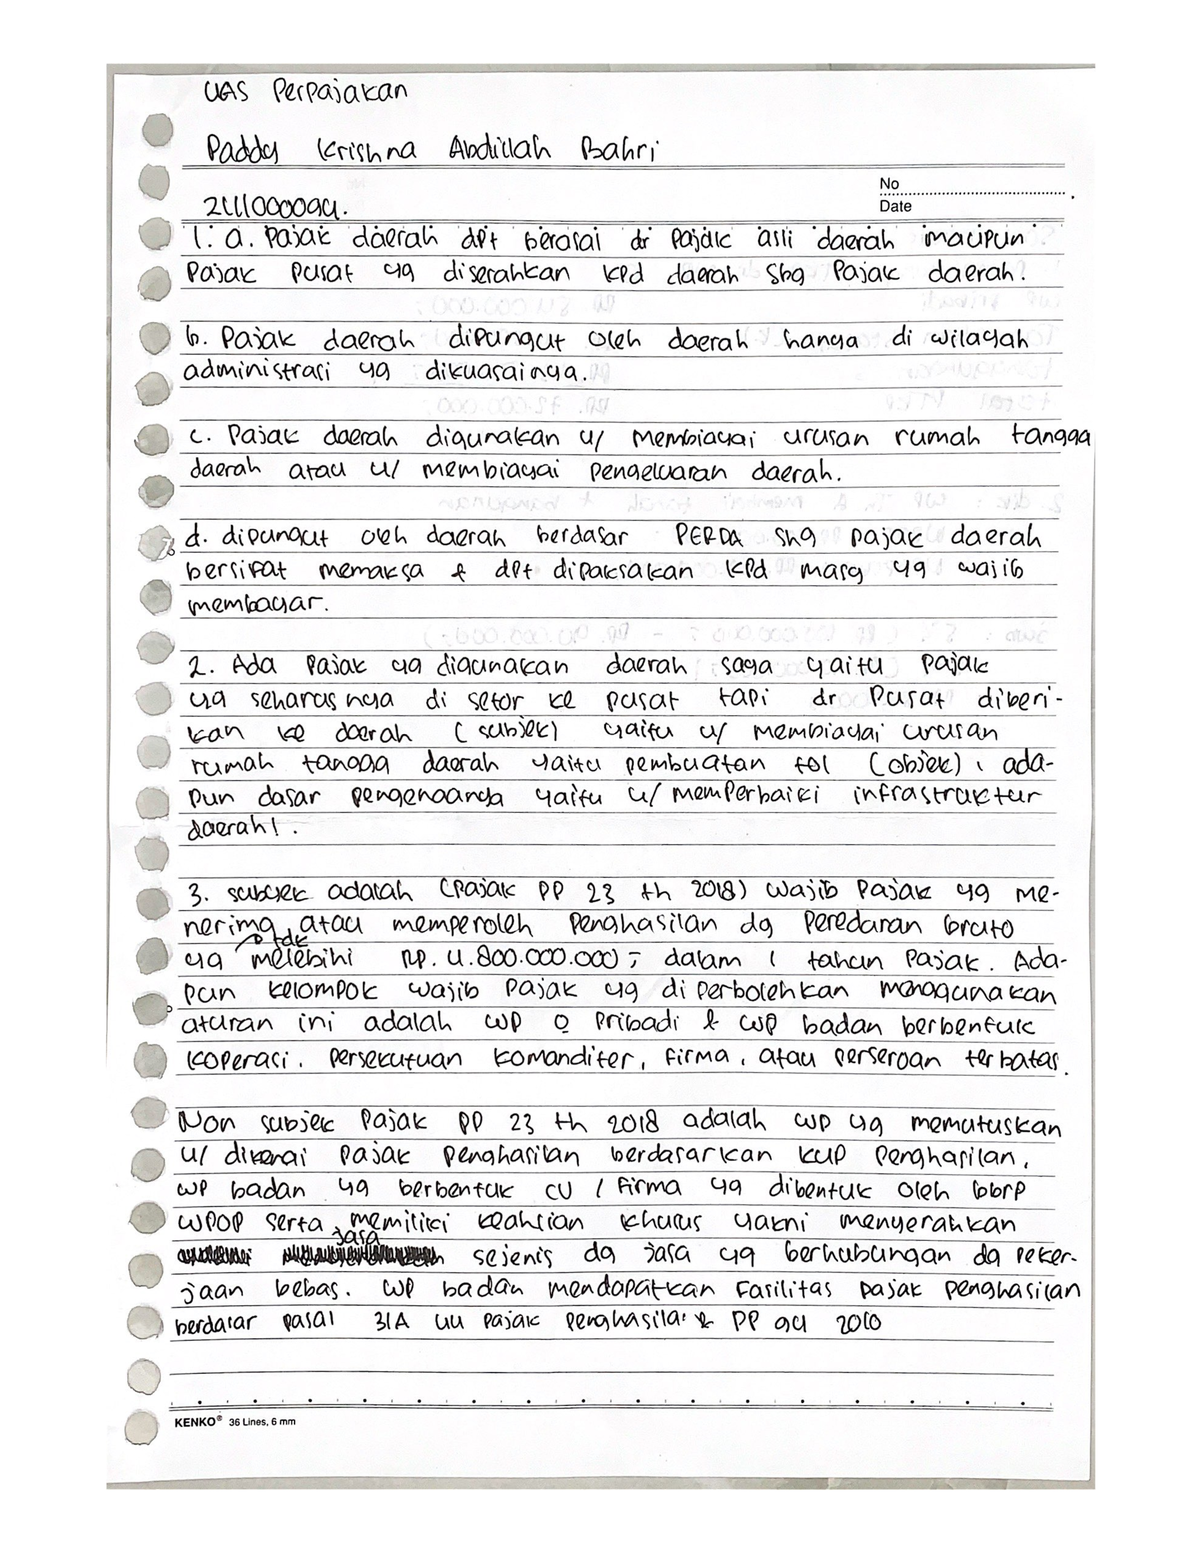 UAS Perpajakan
Paddy Krishna Abdillah Bahri
No
Date
1. a. Pajak daerah dpt berasal dr pajak asli daerah maupun
Pajak pusat yg diserahkan kpd daerah sbg pajak daerah.
b. Pajak daerah dipungut oleh daerah hanya di wilayah
administrasi yg dikuasainya.
c. Pajak daerah digunakan u/ membiayai urusan rumah tangga
daerah atau u/ membiayai pengeluaran daerah.
d. dipungut oleh daerah berdasar PERDA shg pajak daerah
bersifat memaksa & dpt dipaksakan kpd masy yg wajib
membayar.
2. Ada pajak yg digunakan daerah saya yaitu pajak
yg seharusnya di setor ke pusat tapi dr pusat diberi-
kan ke daerah (subjek) yaitu u/ membiayai urusan
rumah tangga daerah yaitu pembuatan tol (objek), ada-
pun dasar pengenaanya yaitu u/ memperbaiki infrastruktur
daerah.
3. subjek adalah (pajak PP 23 th 2018) wajib pajak yg me-
nerima atau memperoleh penghasilan dg peredaran bruto
yg tdk melebihi Rp. 4.800.000.000,- dalam 1 tahun pajak. Ada-
pun kelompok wajib pajak yg di perbolehkan menggunakan
aturan ini adalah WP O pribadi & WP badan berbentuk
koperasi, persekutuan komanditer, firma, atau perseroan terbatas.
Non subjek pajak PP 23 th 2018 adalah WP yg memutuskan
u/ dikenai pajak penghasilan berdasarkan KUP penghasilan,
WP badan yg berbentuk CV / firma yg dibentuk oleh bbrp
WPOP serta memiliki keahlian khusus yakni menyerahkan
jasa sejenis dg jasa yg berhubungan dg peker-
jaan bebas. WP badan mendapatkan fasilitas pajak penghasilan
berdasar pasal 31A UU pajak penghasilan & PP 94 2010
KENKO® 36 Lines, 6 mm